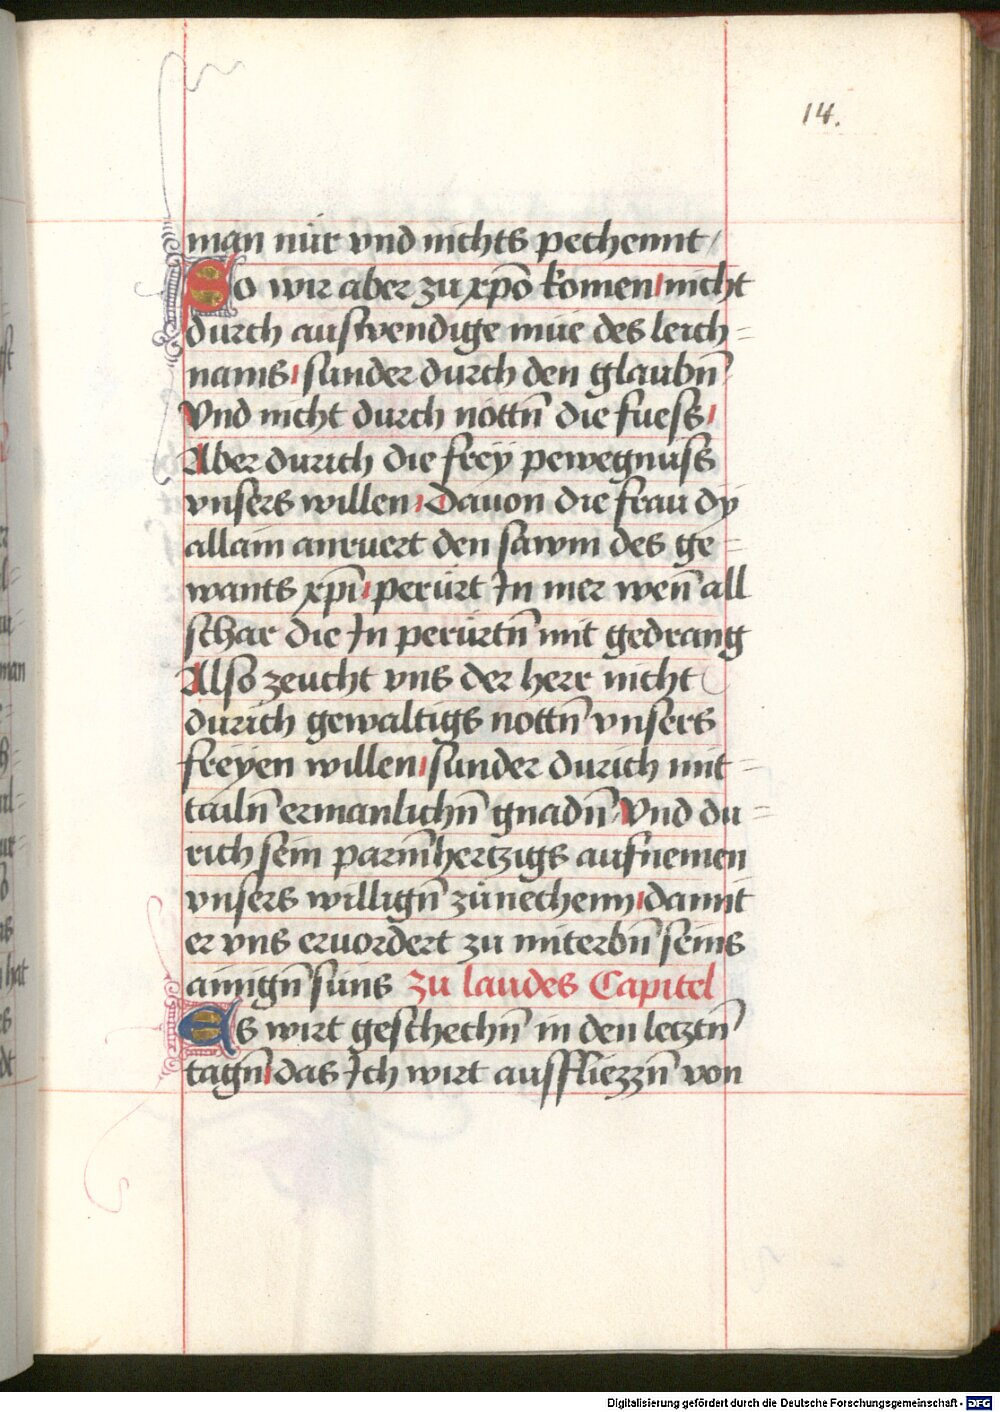 14.
man nür vnd nichts pechennt /
So wir aber zu xp̄o komen / nicht
durch auswendige müe des leich=
nams / sunder durch den glaubn̄
Vnd nicht durch nöttn̄ die fuess /
Aber durich die freÿ pewegnuss
vnsers willen / Dauon die frau dÿ
allain anruert den sawm des ge=
wants xp̄i / perürt In mer wen̄ all
schar die In perürtn̄ mit gedrang
Also zeucht vns der herr nicht
durich gewaltigs nottn̄ vnsers
freÿen willen / sunder durich mit=
tailn̄ ermanlichn̄ gnadn̄ / Vnd du=
rich sein parm̄hertzigs aufnemen
vnsers willign̄ zünechenn / damit
er vns eruordert zu miterbn̄ seins
ainign̄ suns Zu laudes Capitel
Es wirt geschechn̄ in den letztn̄
tagn̄ / das Ich wirt ausffliezzn̄ von
Digitalisierung gefördert durch die Deutsche Forschungsgemeinschaft - DFG